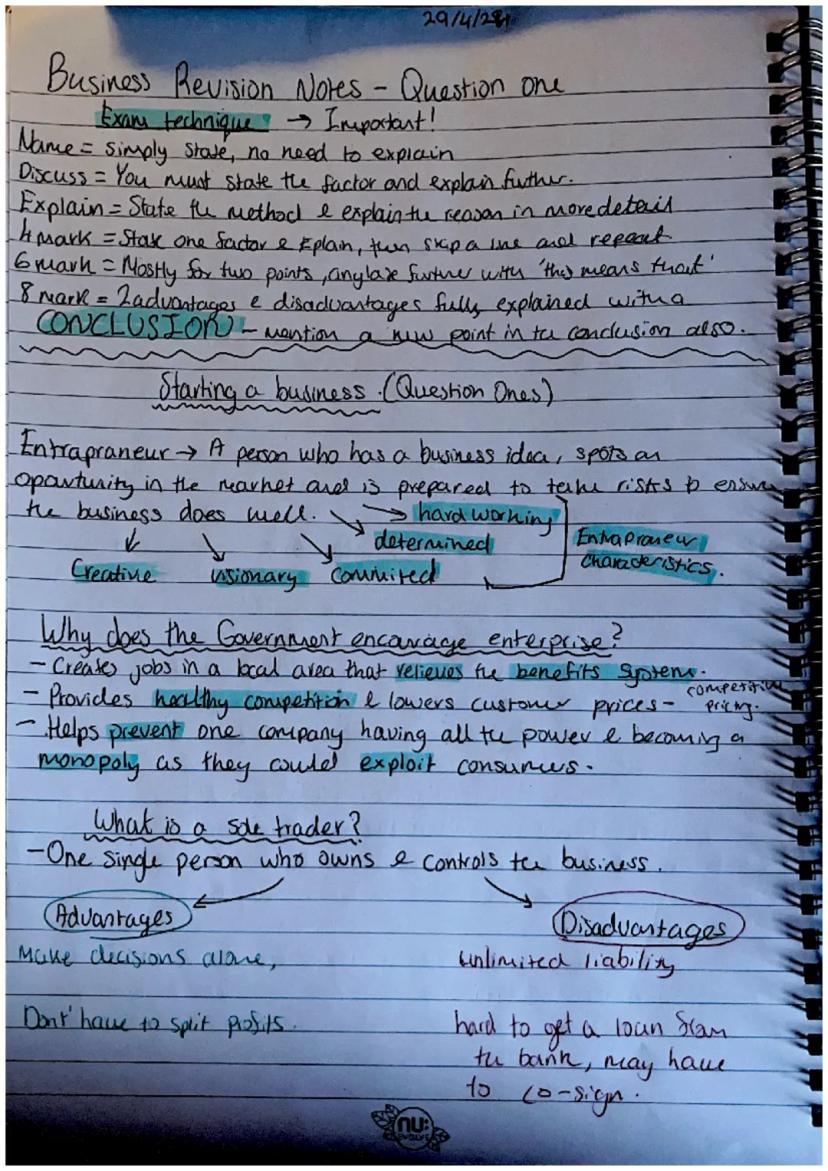 29/4/
Business Revision Notes - Question one
Exam technique → Important!
Name = simply state, no need to explain
Discuss = You must state the factor and explain further.
Explain = State the method & explain the reason in more detail
4 mark = State one factor & explain, then skip a line and repeat
6 mark = Mostly for two points, anylaze further with 'this means that'
8 mark = 2 advantages & disadvantages fully explained with a
CONCLUSION - mention a new point in the conclusion also.
Starting a business. (Question Ones)
Entrapraneur → A person who has a business idea, spots an
opourtunity in the market and is prepared to take risks to ensure
the business does well. → hard working
determined
Entrapraneur
characteristics.
Creative visionary commited
Why does the Government encourage enterprise?
- Creates jobs in a local area that relieves the benefits system.
- Provides healthy competition & lowers customer prices - competitive
pricing.
- Helps prevent one company having all the power & becoming a
monopoly as they could exploit consumers.
What is a sole trader?
- One single person who owns & controls the business.
Advantages Disadvantages
Make decisions alone, unlimited liability
Dont' have to split profits. hard to get a loan from
the bank, may have
to co-sign.
nu:
EVOLVE